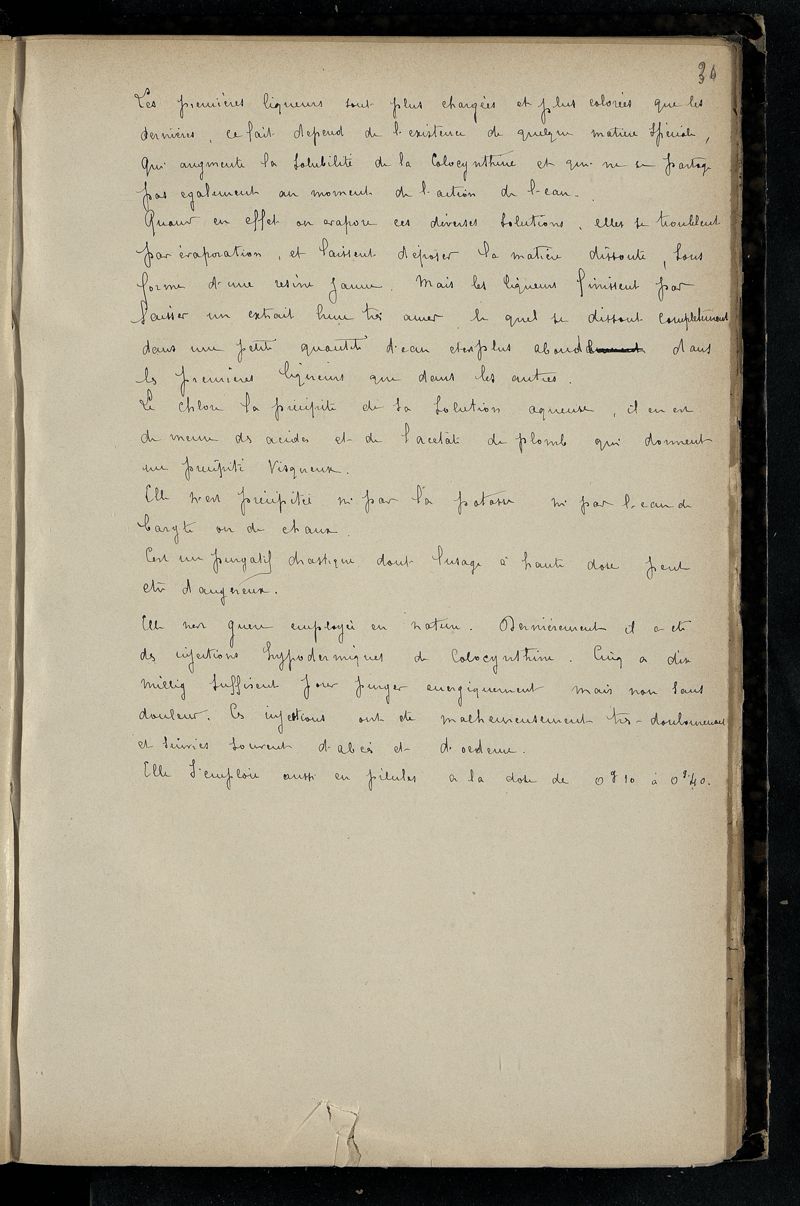 30
Les premières liqueurs sont plus chargées et plus colorées que les
dernières, ce fait depend de l'existence de quelque matière spéciale,
qui augmente la solubilité de la Colocynthine et qui ne se partage
pas egalement au moment de l'action de l'eau.
Quand en effet on evapore ces diverses solutions, elles se troublent
par évaporation, et laissent déposer la matière dissoute, sous
forme d'une resine jaune. Mais les liqueurs finissent par
laisser un extrait brun très amer le quel se dissout complètement
dans une petite quantité d'eau et est plus abond dans
les premières liqueurs que dans les autres.
Le chlore la précipite de sa solution aqueuse, il en est
de meme des acides et de l'acétate de plomb qui donnent
un precipité visqueux.
Elle n'est précipitée ni par la potasse ni par l'eau de
baryte ou de chaux.
C'est un purgatif drastique dont l'usage à haute dose peut
etre dangereux.
Elle n'est guere employée en nature. Dernièrement il a été
des injections hypodermiques de Colocynthine. Cinq a dix
millig suffisent pour purger energiquement mais non sans
douleur. Ces injections ont été malheureusement très-douloureuses
et suivies souvent d'abcès et d'oedeme.
Elle s'emploie aussi en pilules a la dose de 0g10 à 0g40.